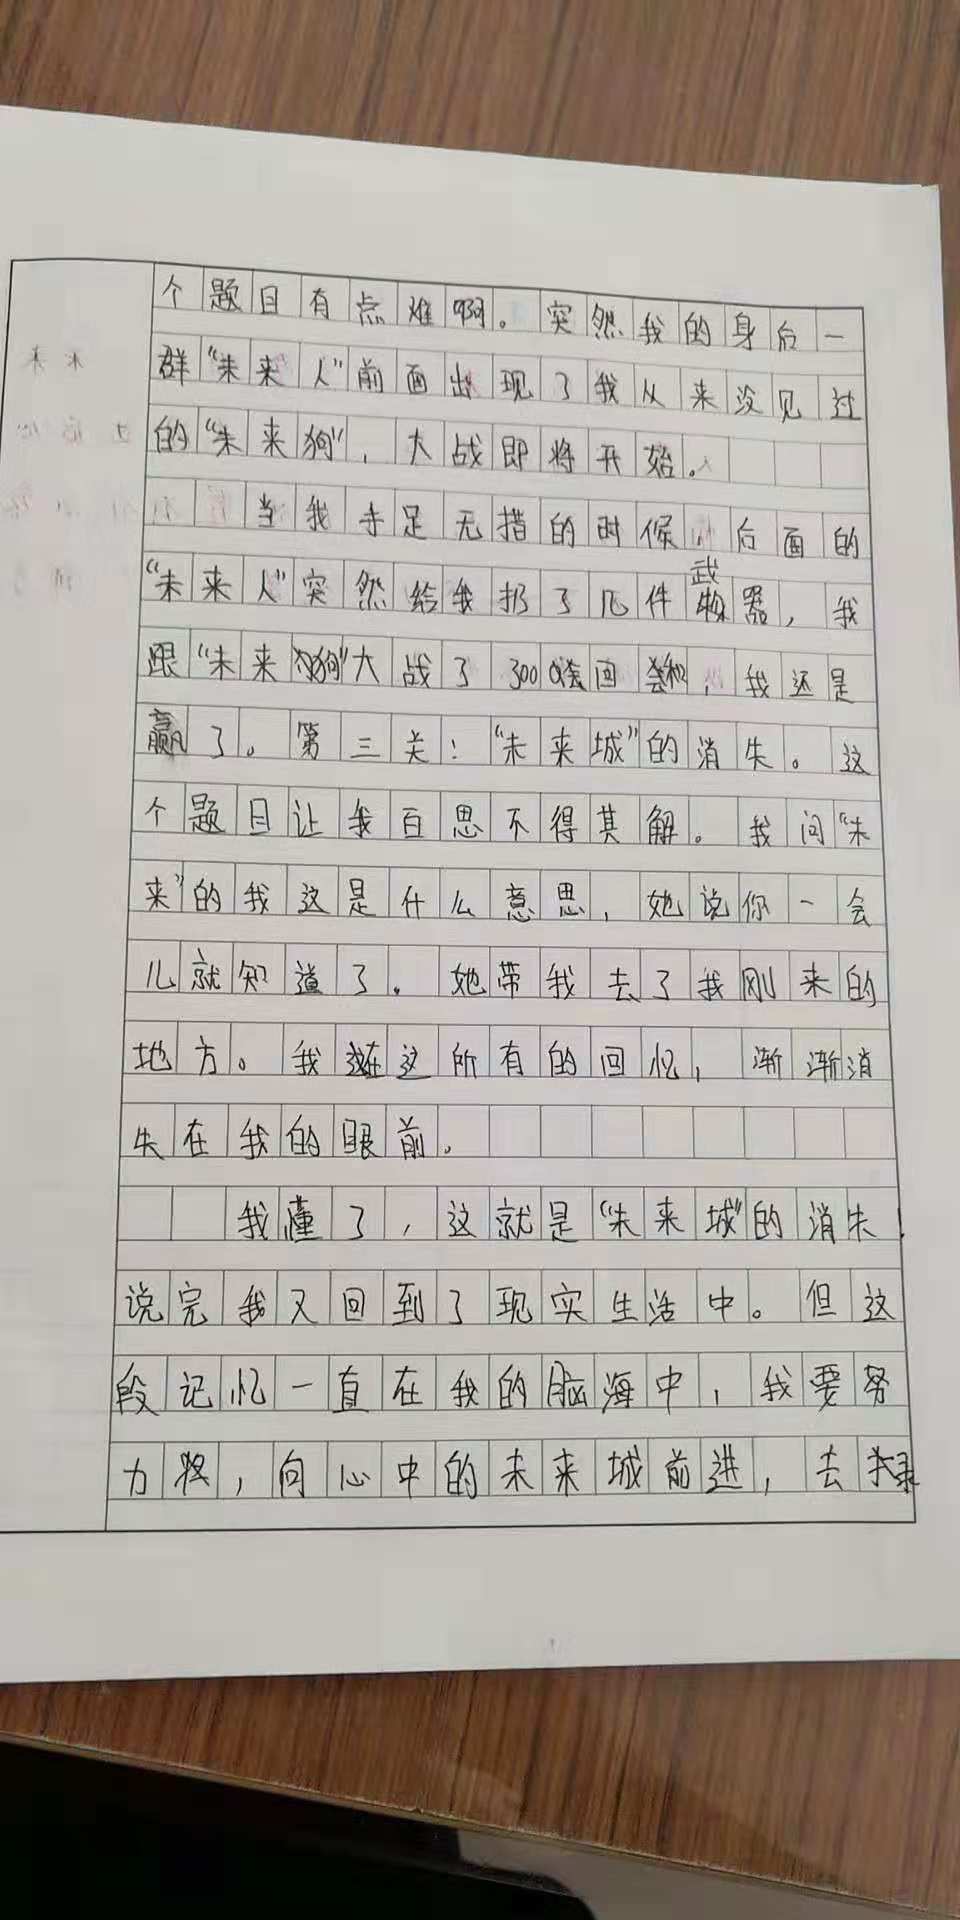 个题目有点难啊。突然我的身后一
群“未来人”前面出现了我从来没见过
的“未来狗”，大战即将开始。
当我手足无措的时候后面的
“未来人”突然给我扔了几件武器，我
跟“未来狗”大战了300回，我还是
赢了。第三关：“未来城”的消失。这
个题目让我百思不得其解。我问“未
来”的我这是什么意思，她说你一会
儿就知道了。她带我去了我刚来的
地方。我在这所有的回忆，渐渐消
失在我的眼前。
我懂了，这就是“未来城”的消失！
说完我又回到了现实生活中。但这
段记忆一直在我的脑海中，我要努
力，向心中的未来城前进，去